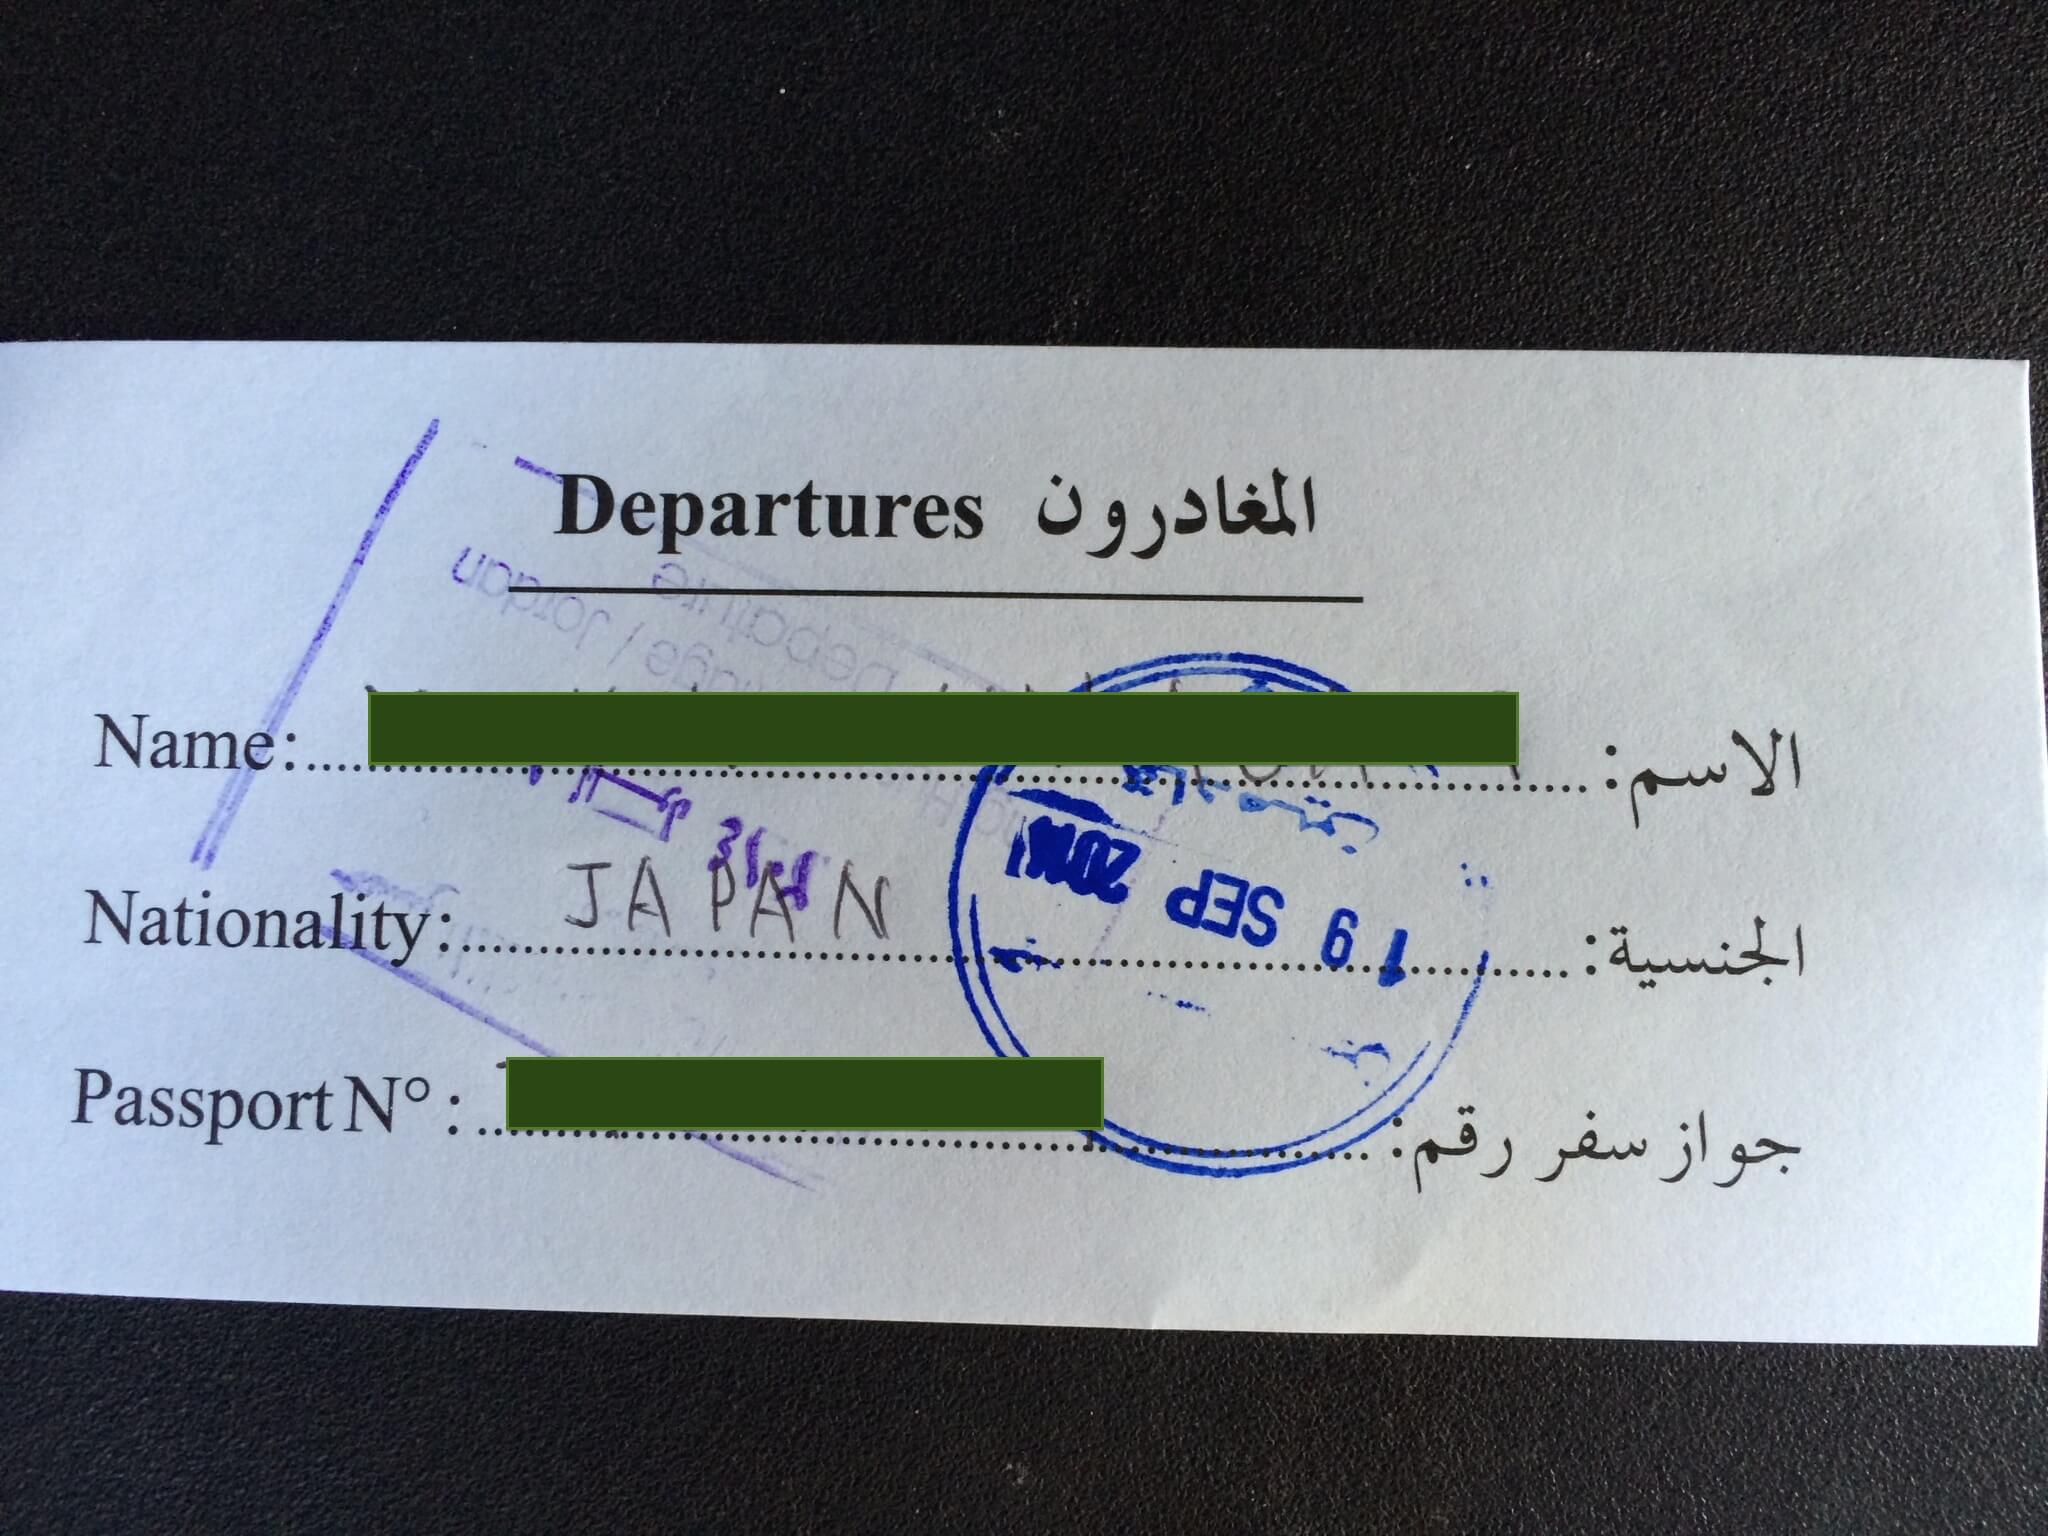 Departures المغادرون
Name: الاسم:
Nationality: JAPAN الجنسية:
Passport N°: جواز سفر رقم:
Departure
Jordan
19 SEP